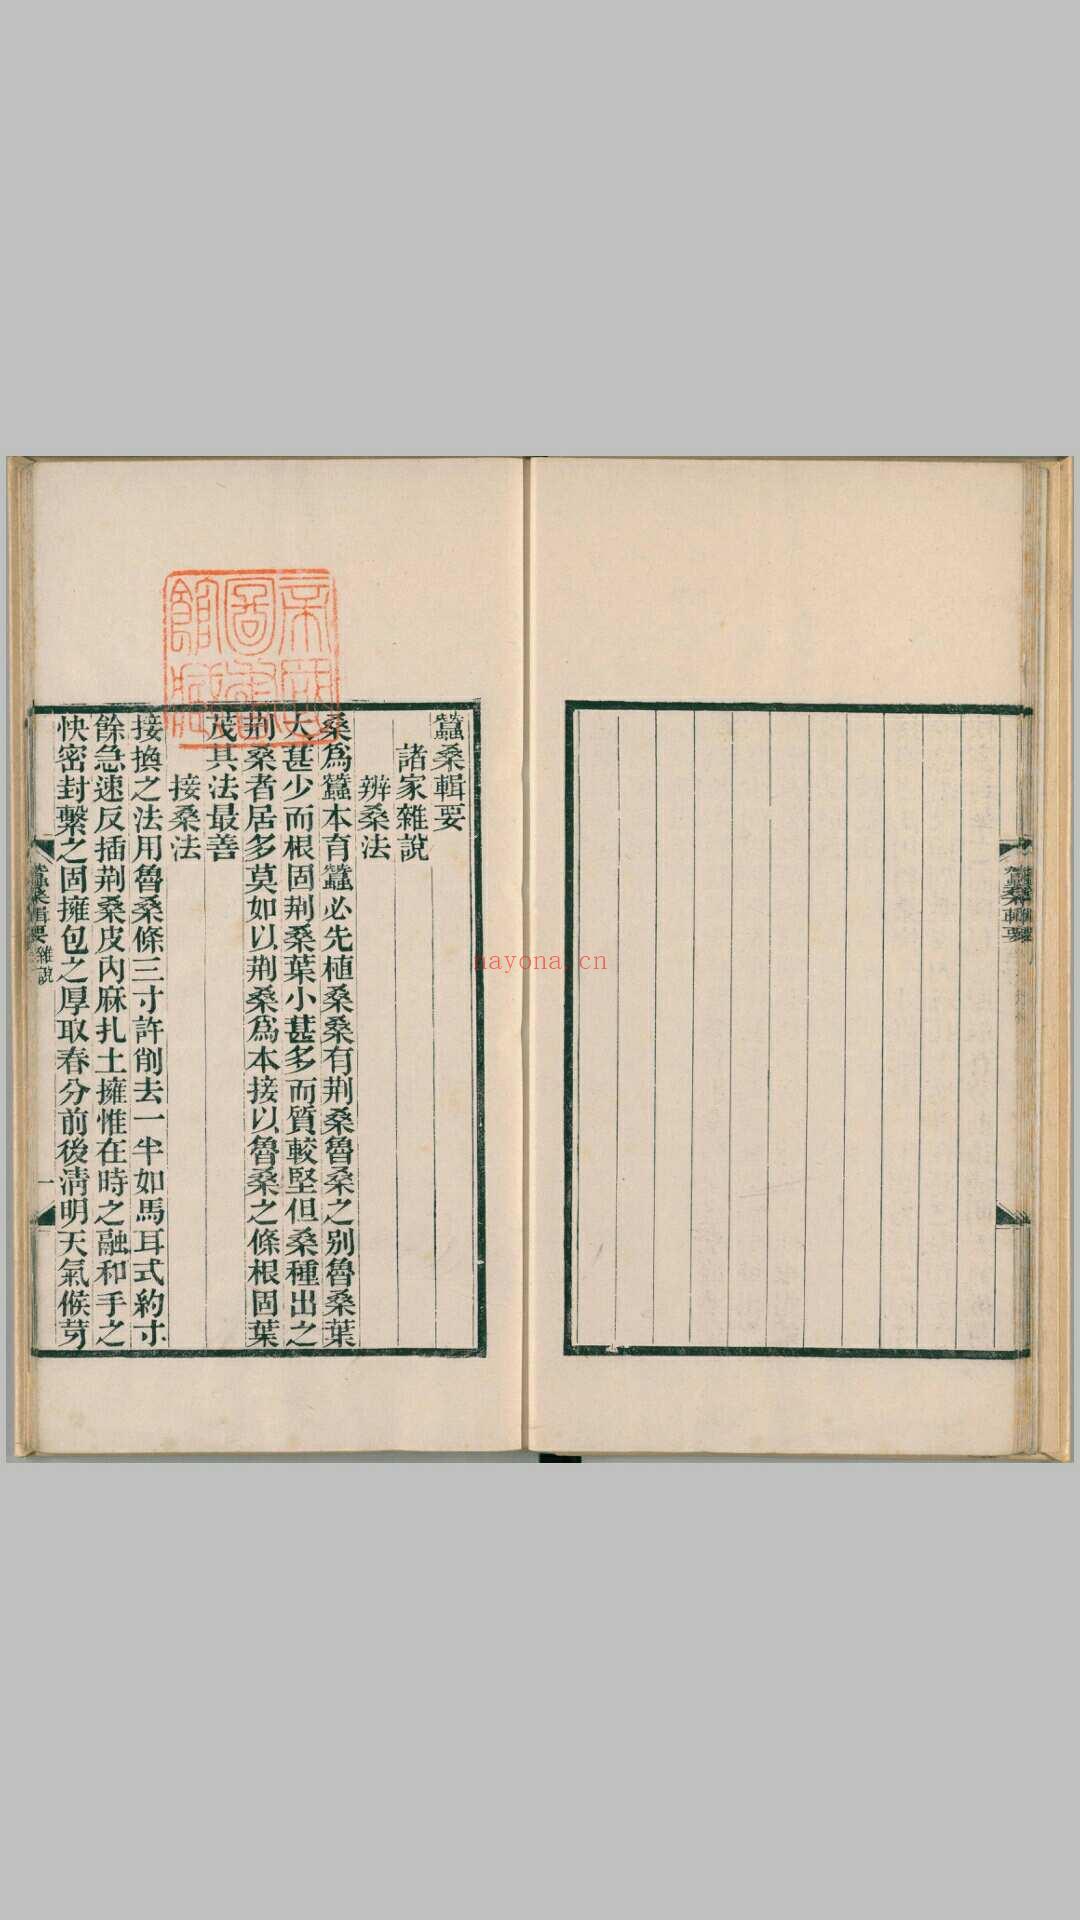 蠶桑輯要
蠶桑輯要
諸家雜說
辨桑法
桑爲蠶本育蠶必先植桑桑有荆桑魯桑之别魯桑葉
大甚少而根固荆桑葉小甚多而質較堅但桑種出之
荆桑者居多莫如以荆桑爲本接以魯桑之條根固葉
茂其法最善
接桑法
接換之法用魯桑條三寸許削去一半如馬耳式約寸
餘急速反插荆桑皮內麻扎土擁惟在時之融和手之
快密封繫之固擁包之厚取春分前後淸明天氣候芽
蠶桑輯要 雜說 一
帝國圖書館藏
nayona.cn